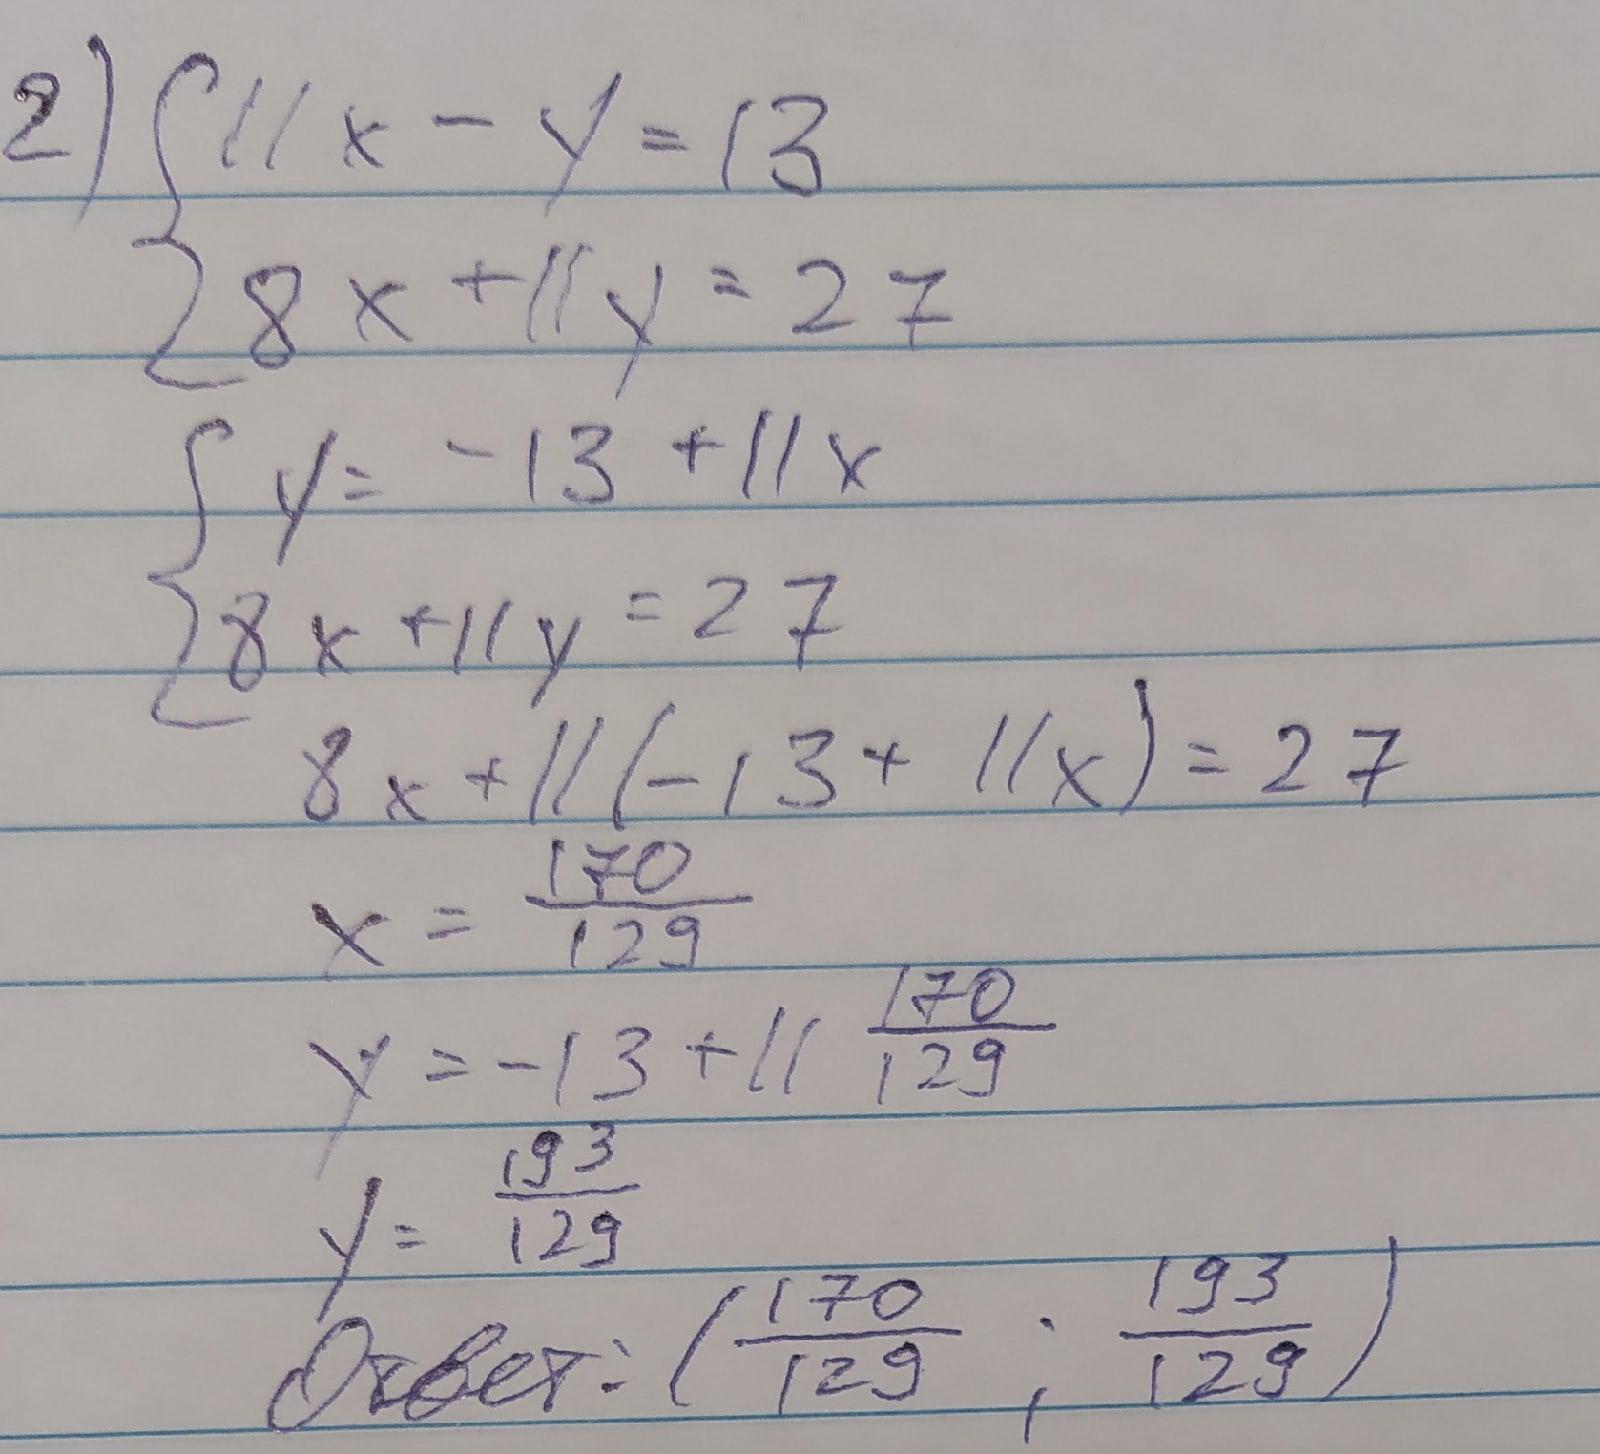 2) { 11x - y = 13
8x + 11y = 27
{ y = -13 + 11x
8x + 11y = 27
8x + 11(-13 + 11x) = 27
x = 170/129
y = -13 + 11 170/129
y = 193/129
Ответ: (170/129 ; 193/129)